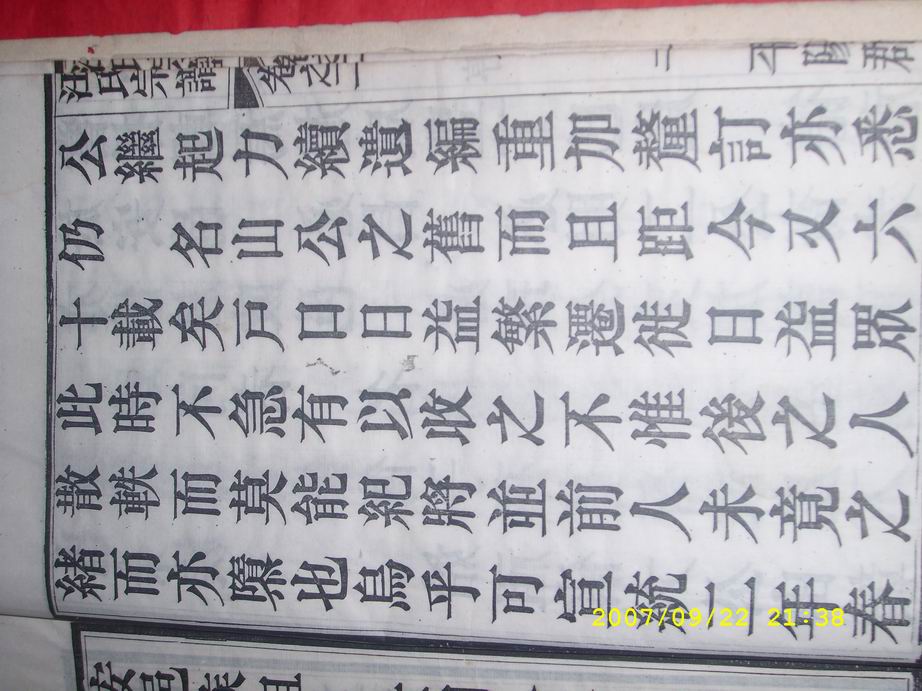 汪氏宗譜 卷之二 二 平陽郡
公繼起力續遺編重加釐訂亦悉
仍 名山公之舊而且距今又六
十載矣戸口日益繁遷徙日益眾
此時不急有以收之不惟後之人
散軼而莫能紀將並前人未竟之
緒而亦隳也烏乎可宣統二年春
安邑族祖
2007/09/22 21:38